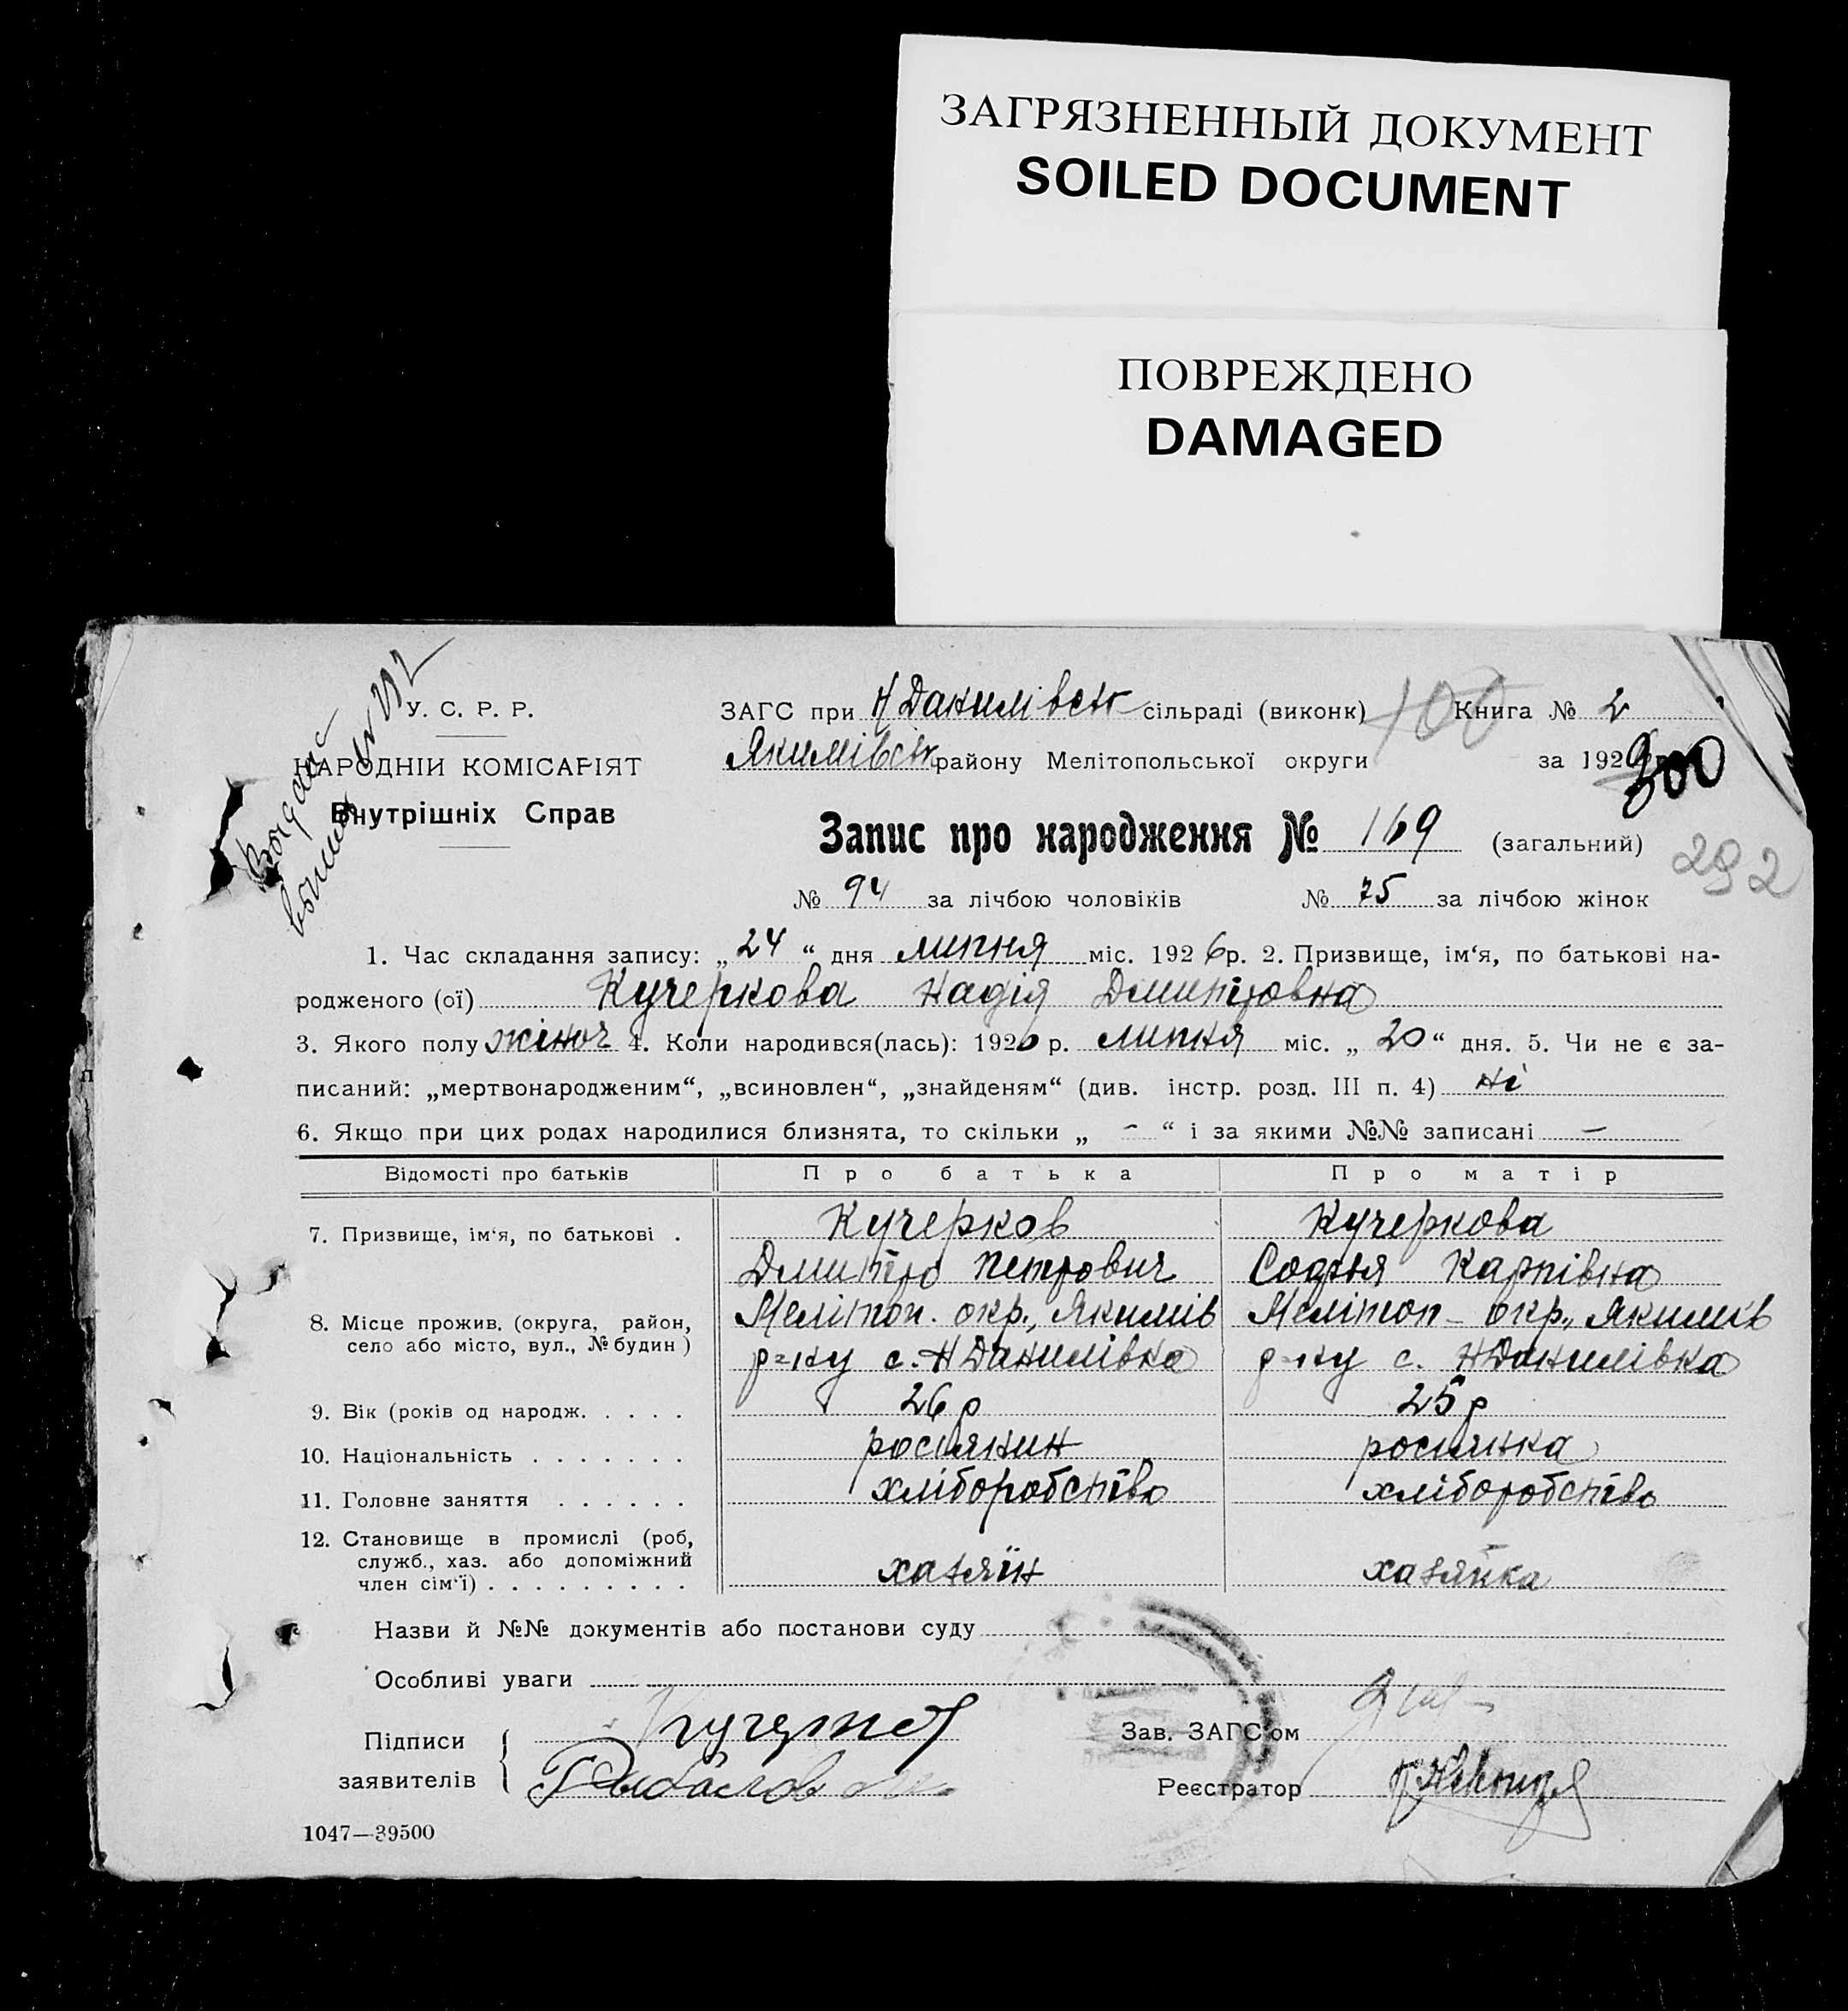 ЗАГРЯЗНЕННЫЙ ДОКУМЕНТ
SOILED DOCUMENT
ПОВРЕЖДЕНО
DAMAGED
У. С. Р. Р.
НАРОДНІЙ КОМІСАРІЯТ
Внутрішніх Справ
ЗАГС при Н Данилівськ сільраді (виконк) 100 Книга № 2
Якимівськ району Мелітопольської округи за 1926
300
Запис про народження № 169 (загальний)
292
№ 94 за лічбою чоловіків № 75 за лічбою жінок
1. Час складання запису: „24“ дня липня міс. 1926 р. 2. Призвище, ім‘я, по батькові на-
родженого (ої) Кучеркова Надія Дмитровна
3. Якого полу жіноч 4. Коли народився(лась): 1926 р. липня міс. „20“ дня. 5. Чи не є за-
писаний: „мертвонародженим“, „всиновлен“, „знайденям“ (див. інстр. розд. III п. 4) ні
6. Якщо при цих родах народилися близнята, то скільки „ - “ і за якими №№ записані —
Відомості про батьків Про батька Про матір
7. Призвище, ім‘я, по батькові . Кучерков Кучеркова
Дмитро Петрович Софья Карпівна
8. Місце прожив. (округа, район, Мелітоп. окр., Якимів Мелітоп - окр., Якимів
село або місто, вул., № будин) р=ну с. Н Данилівка р=ну с. Н Данилівка
9. Вік (років од народж. . . . . 26 р 25 р
10. Національність . . . . . . . росіянин росіянка
11. Головне заняття . . . . . . хліборобство хліборобство
12. Становище в промислі (роб,
служб., хаз. або допоміжний
член сім‘ї) . . . . . . . . . хазяїн хазяйка
Назви й №№ документів або постанови суду
Особливі уваги
Підписи
Зав. ЗАГС‘ом
заявителів
Реєстратор
1047—39500